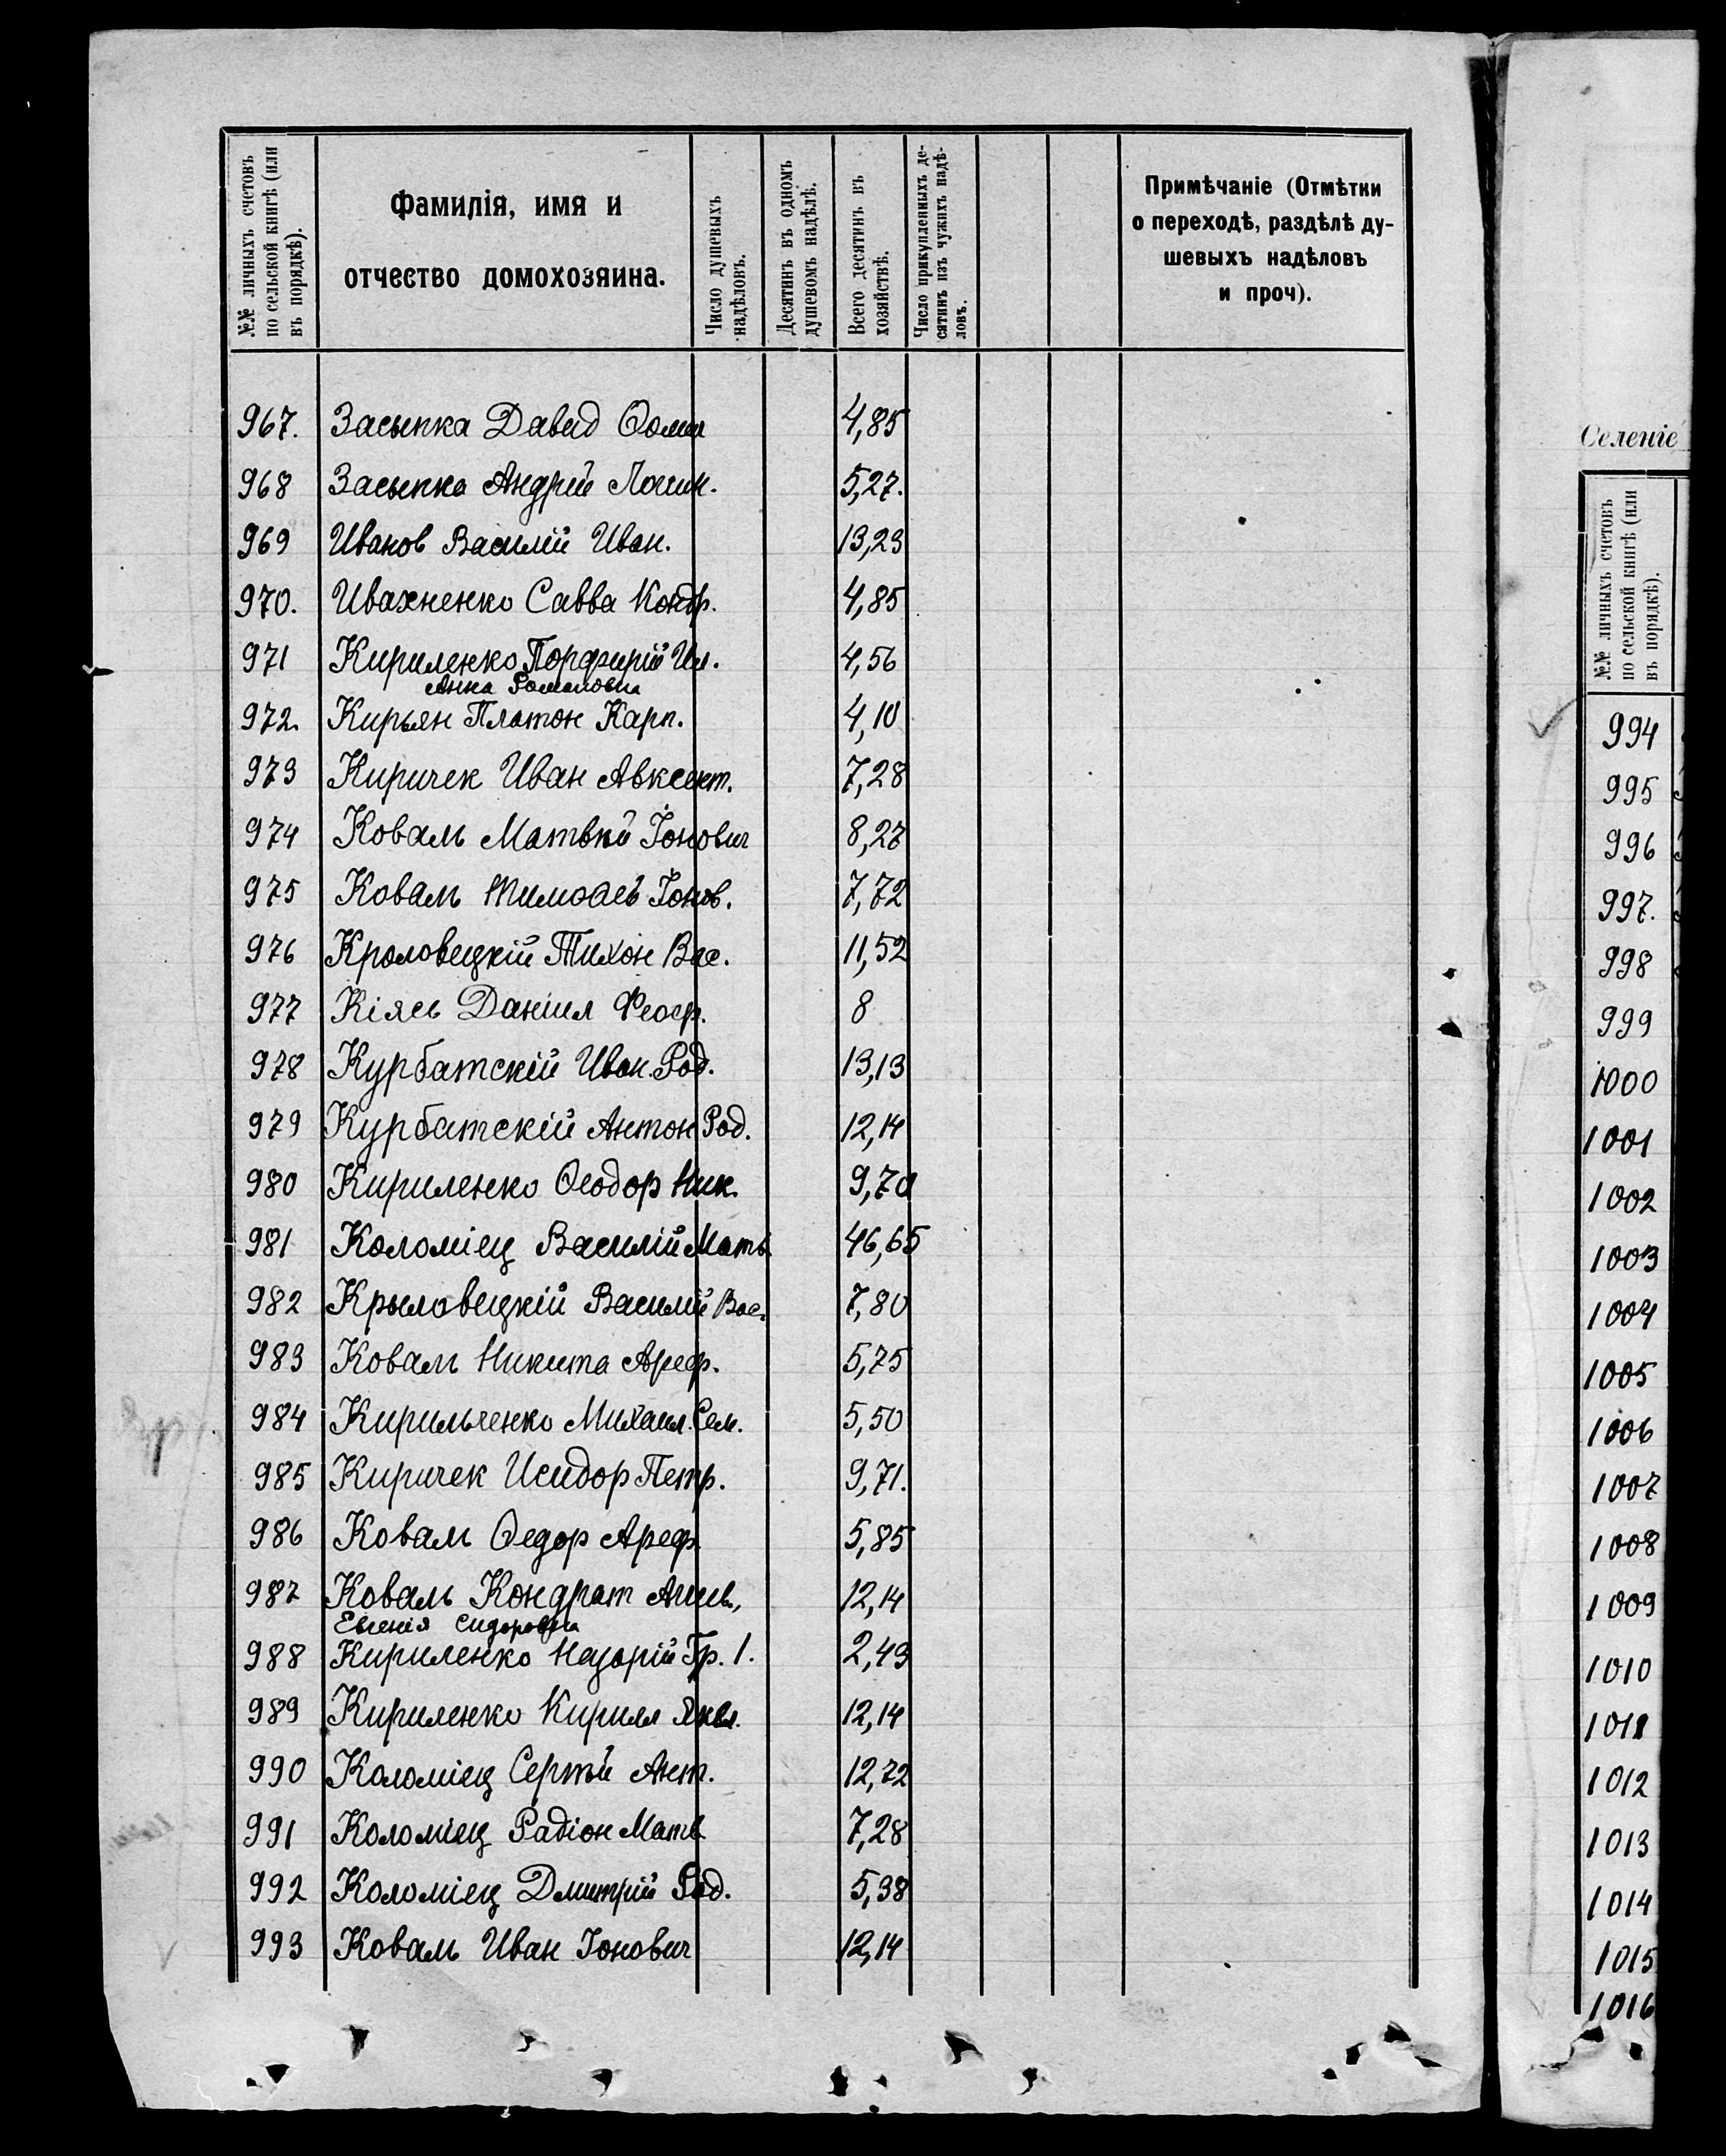 №№ личныхъ счетовъ по сельской книгѣ (или въ порядкѣ).
Фамилія, имя и отчество домохозяина.
Число душевыхъ надѣловъ.
Десятинъ въ одномъ душевомъ надѣлѣ.
Всего десятинъ въ хозяйствѣ.
Число прикупленныхъ десятинъ изъ чужихъ надѣловъ.
Примѣчаніе (Отмѣтки
о переходѣ, раздѣлѣ ду-
шевыхъ надѣловъ
и проч).
967. Засыпка Давид Ѳомич 4,85
968 Засыпка Андрій Логин. 5,27.
969 Иванов Василій Иван. 13,23
970. Ивахненко Савва Кондр. 4,85
971 Кириленко Порфирій Ил. 4,56
Анна Романовна
972. Кирьян Платон Карп. 4,10
973 Киричек Иван Авксент. 7,28
974 Коваль Матвѣй Іонович 8,28
975 Коваль Тимоѳей Іонов. 7,72
976 Кроловецкій Тихон Вас. 11,52
977 Кіясь Даніил Феоф. 8
978 Курбатскій Иван. Род. 13,13
979 Курбатскій Антон Род. 12,14
980 Кириленко Ѳеодор Ник. 9,70
981 Коломіец Василій Матв. 46,65
982 Крыловецкій Василій Вас. 7,80
983 Коваль Никита Ареф. 5,75
984 Кирильченко Михаил. Сем. 5,50
985 Киричек Исидор Петр. 9,71.
986 Коваль Ѳедор Ареф. 5,85
987 Коваль Кондрат 12,14
Евгенія Сидоровна
988 Кириленко Назорій Гр. 1. 2,43
989 Кириленко Кирилл Яквл. 12,14
990 Коломіец Сергѣй Ант. 12,72
991 Коломіец Радіон Матв. 7,28
992 Коломіец Дмитрій Род. 5,38
993 Коваль Иван Іонович 12,14
Селеніе
№№ личныхъ счетовъ по сельской книгѣ (или въ порядкѣ).
994
995
996
997.
998
999
1000
1001
1002
1003
1004
1005
1006
1007
1008
1009
1010
1011
1012
1013
1014
1015
1016